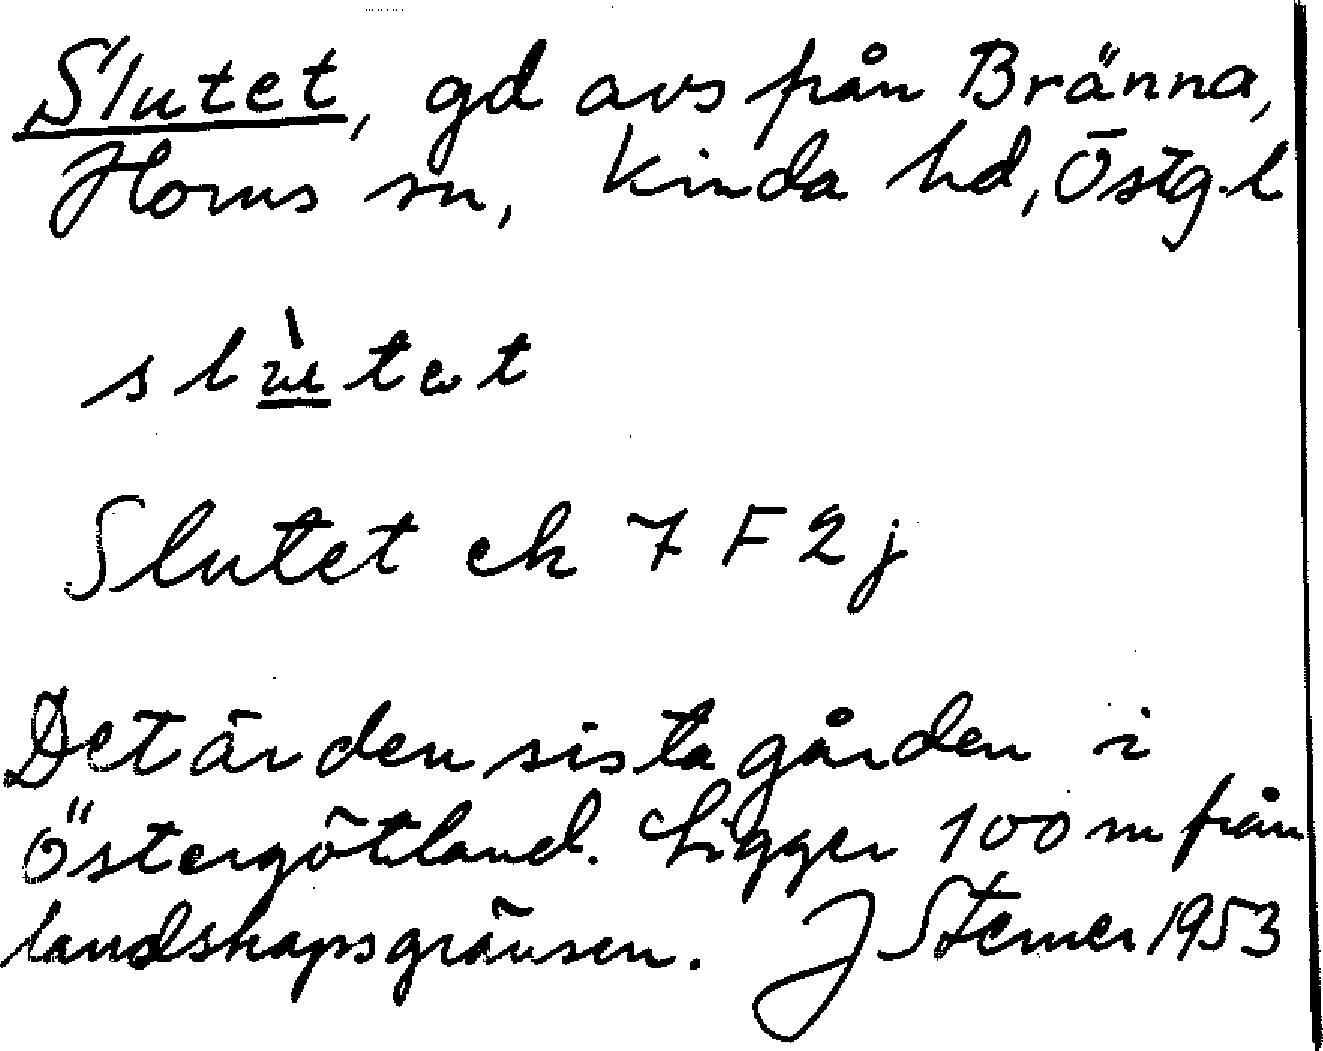 Slutet, gd avs från Bränna,
Horns sn, Kinda hd, Östg.l
slùtet
Slutet ek 7 F 2 j
Det är den sista gården i
Östergötland. Ligger 100 m från
landskapsgränsen. J Sterner 1953